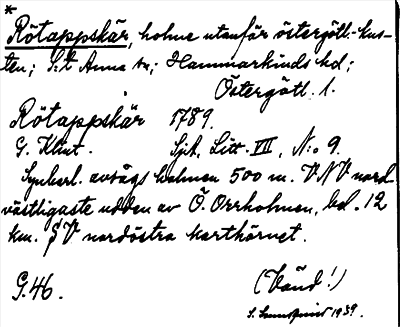 *
Rötappskär, holme utanför östergötl. kus-
ten; S:t Anna sn; Hammarkinds hd;
Östergötl. l.
Rötappskär 1789.
G. Klint. Sjk, Litt. VIII, N:o 9.
Synbarl. avsågs holmen 500 m. VNV nord-
västligaste udden av Ö. Orrholmen, bel. 12
km. SV nordöstra karthörnet.
G.46. (Vänd!)
S. 1939.